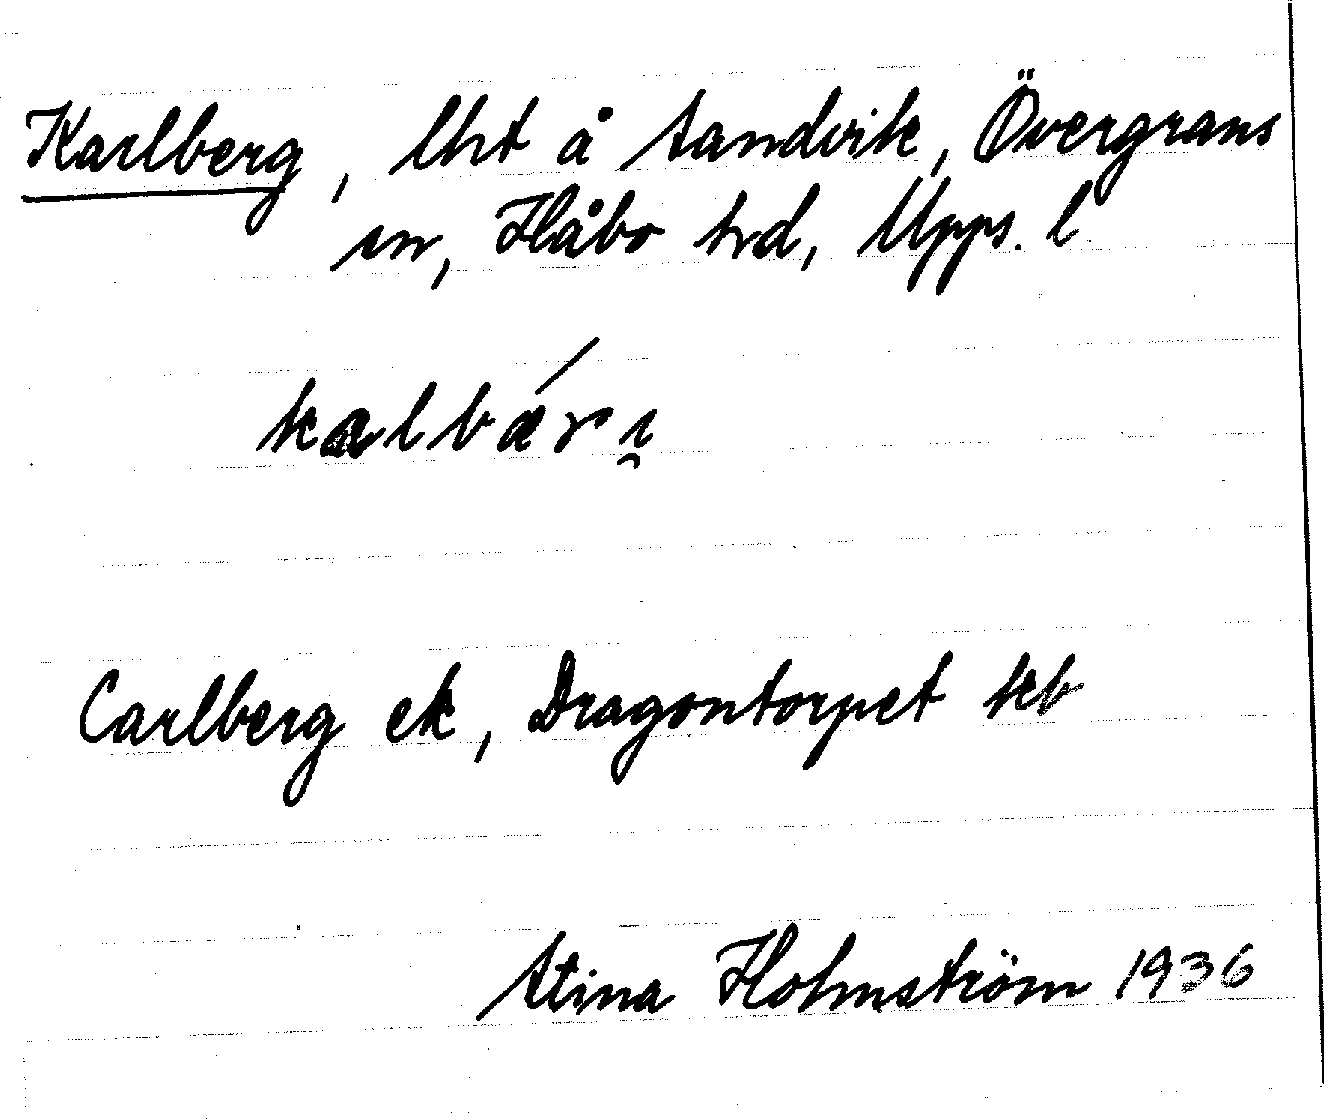 Karlberg, lht å Sandvik, Övergrans
sn, Håbo hrd, Upps. l.
kalbæri̯
Carlberg ek, Dragontorpet kb
Stina Holmström 1936